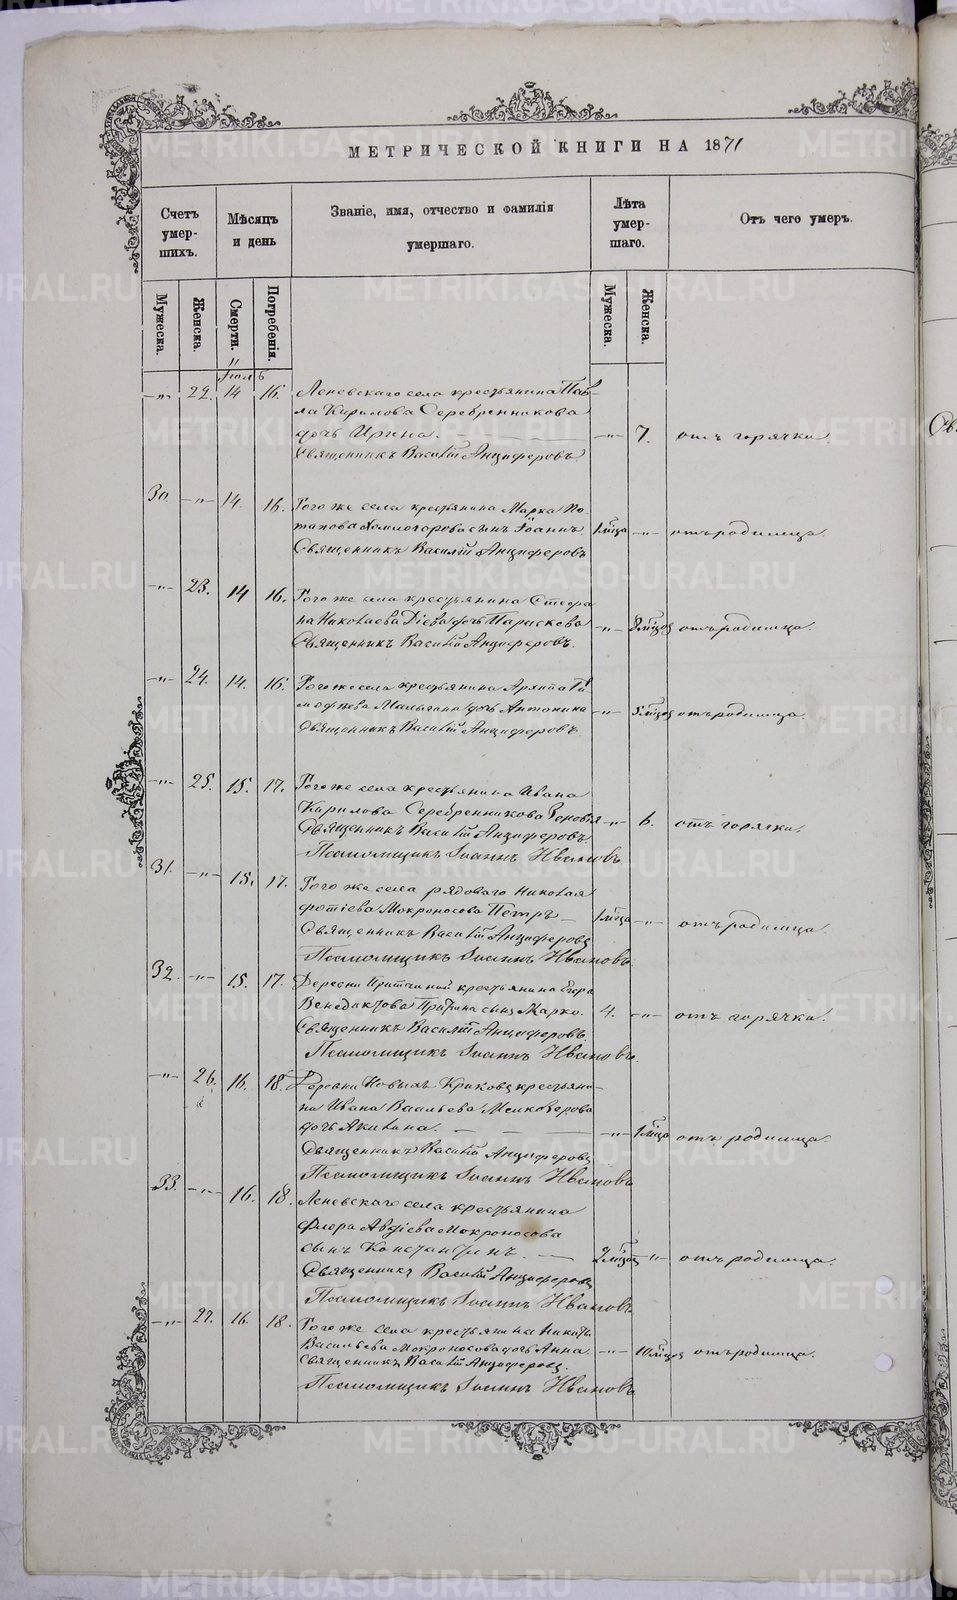 МЕТРИЧЕСКОЙ КНИГИ НА 1871
Счетъ умер-шихъ.
Мѣсяцъ и день
Званіе, имя, отчество и фамилія умершаго.
Лѣта умер-шаго.
Отъ чего умеръ.
Мужеска.
Женска.
Смерти.
Погребенія.
Мужеска.
Женска.
Іюль
-"- 22. 14 16. Леневскаго села крестьянина Пав-
ла Кирилова Серебренникова
дочь Ирина. -"- 7. отъ горячки.
Священникъ Василій Анциферовъ.
30. -"- 14. 16. Того же села крестьянина Марка По-
тапова сынъ Іоаннъ. 1 мѣсца -"- отъ родимца.
Священникъ Василій Анциферовъ
-"- 23. 14 16. Того же села крестьянина Стефа
на Николаева дочь Параскева -"- 8 мѣсцъ отъ родимца.
Священникъ Василій Анциферовъ.
-"- 24. 14. 16. Того же села крестьянина Архипа Ти
мофѣева Малыгина дочь Антонина -"- мѣсцъ отъ родимца.
Священникъ Василій Анциферовъ
-"- 25. 15. 17. Того же села крестьянина Ивана
Кирилова Серебренникова Зеновья -"- 6. отъ горячки.
Священникъ Василій Анциферовъ
Псаломщикъ Іоаннъ Ивановъ
31. -"- 15. 17. Того же села рядоваго Николая
Фотіева Мокроносова Петръ 1 мѣсца -"- отъ родимца.
Священникъ Василій Анциферовъ
Псаломщикъ Іоаннъ Ивановъ.
32. -"- 15. 17. Деревни Притчиной крестьянина Егора
Венедиктова Притчина сынъ Марко. 4. -"- отъ горячки.
Священникъ Василій Анциферовъ.
Псаломщикъ Іоаннъ Ивановъ.
-"- 26. 16. 18. Деревни Новыхъ Кривковъ крестьяни-
на Ивана Васильева
дочь Акилина. -"- 1 мѣсца отъ родимца.
Священникъ Василій Анциферовъ
Псаломщикъ Іоаннъ Ивановъ
33. -"- 16. 18. Леневскаго села крестьянина
Флора Авдіева Мокроносова
сынъ Константинъ. 2 мѣсцъ -"- отъ родимца.
Священникъ Василій Анциферовъ
Псаломщикъ Іоаннъ Ивановъ
-"- 27. 16. 18. Того же села крестьянина Никиты
Васильева Мокроносова дочь Анна -"- 10 мѣсцъ отъ родимца.
Священникъ Василій Анциферовъ.
Псаломщикъ Іоаннъ Ивановъ
METRIKI.GASO-URAL.RU